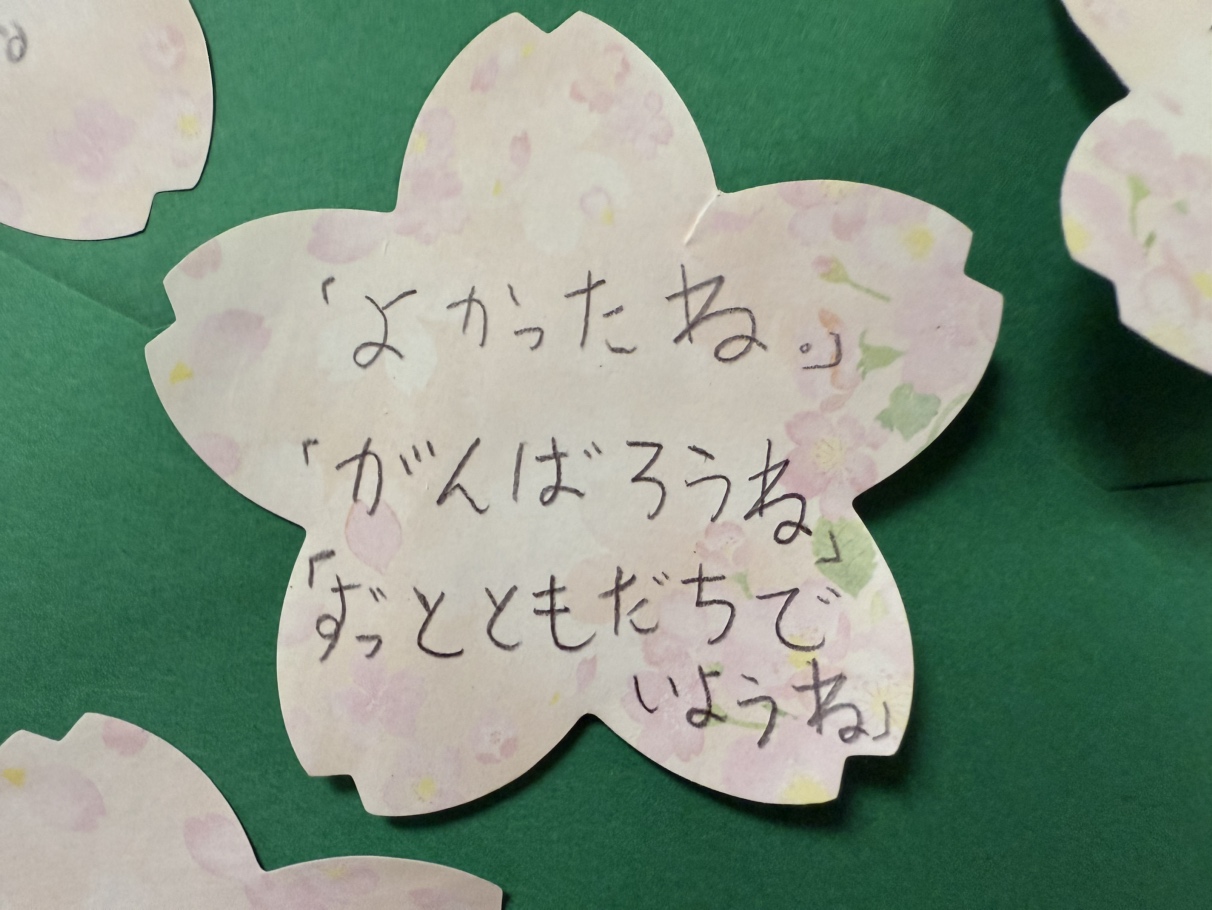 「よかったね。」
「がんばろうね」
「ずっとともだちで
いようね」